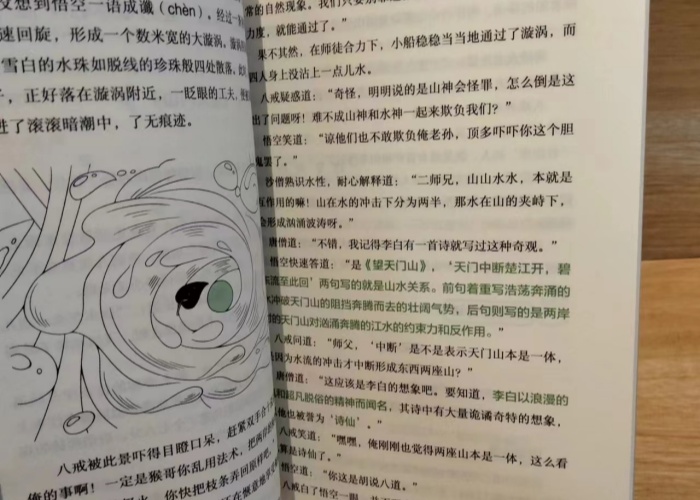 没想到悟空一语成谶（chèn）。经过一
速回旋，形成一个数米宽的大漩涡，漩涡
雪白的水珠如脱线的珍珠般四处散落。
子，正好落在漩涡附近，一眨眼的工夫，
进了滚滚暗潮中，了无痕迹。
八戒被此景吓得目瞪口呆，赶紧双手合
俺的事啊！一定是猴哥你乱用法术，把两
你快把枝条弄回原样吧。
常的自然现象。我们只要
力度，就能通过了。”
果不其然，在师徒合力下，小船稳稳当当地通过了漩涡，而
四人身上没沾上一点儿水。
八戒疑惑道：“奇怪，明明说的是山神会怪罪，怎么倒是这
出了问题呀！难不成山神和水神一起来欺负我们？”
悟空笑道：“谅他们也不敢欺负俺老孙，顶多吓吓你这个胆
鬼罢了。”
沙僧熟识水性，耐心解释道：“二师兄，山山水水，本就是
互作用的嘛！山在水的冲击下分为两半，那水在山的夹峙下，
会形成汹涌波涛呀。”
唐僧道：“不错，我记得李白有一首诗就写过这种奇观。”
悟空快速答道：“是《望天门山》，‘天门中断楚江开，碧
东流至此回’两句写的就是山水关系。前句着重写浩荡奔涌的
水冲破天门山的阻挡奔腾而去的壮阔气势，后句则写的是两岸
对的天门山对汹涌奔腾的江水的约束力和反作用。”
八戒问道：“师父，‘中断’是不是表示天门山本是一体，
是因为水流的冲击才中断形成东西两座山？”
唐僧道：“这应该是李白的想象吧。要知道，李白以浪漫的
和超凡脱俗的精神而闻名，其诗中有大量诡谲奇特的想象，
他也被誉为‘诗仙’。”
八戒笑道：“嘿嘿，俺刚刚也觉得两座山本是一体，这么看
算是诗仙了。”
悟空道：“你这是胡说八道。”
八戒白了悟空一眼，